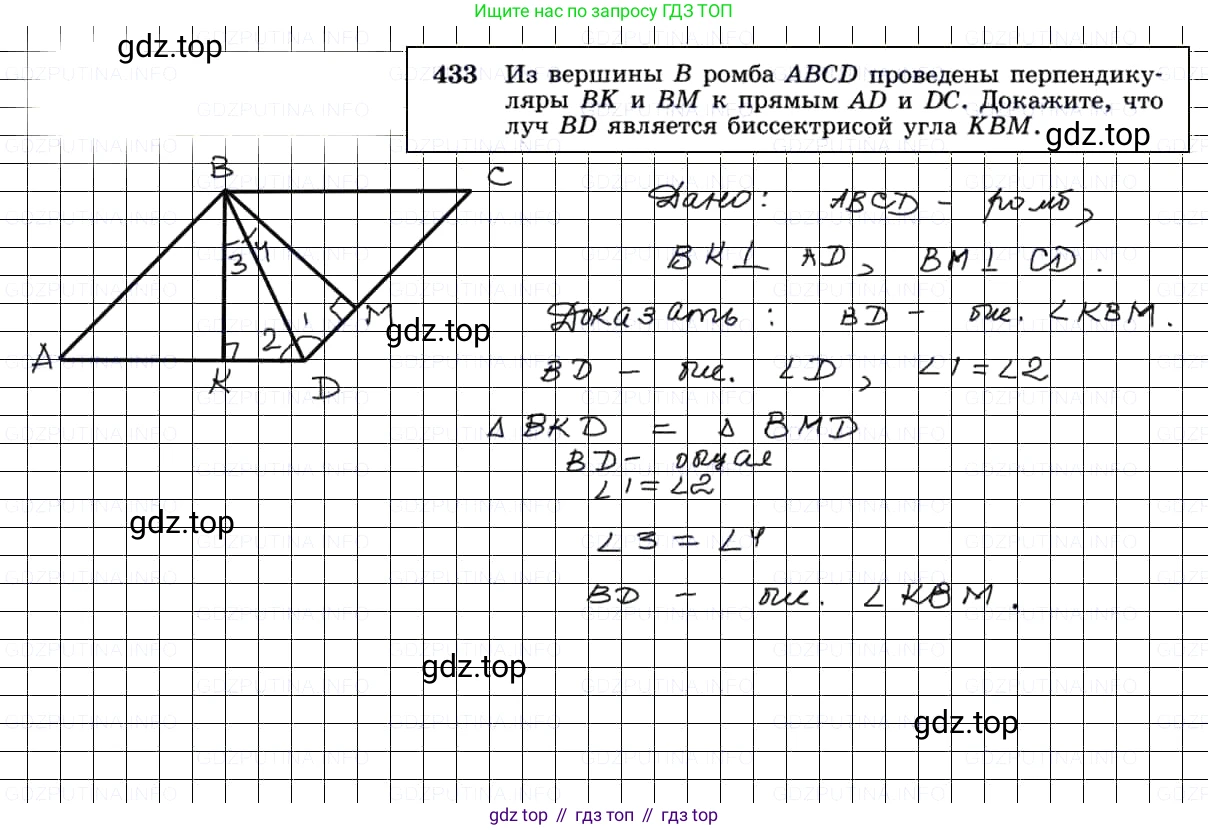 Ищите нас по запросу ГДЗ ТОП
gdz.top
433 Из вершины B ромба ABCD проведены перпендику-
ляры BK и BM к прямым AD и DC. Докажите, что
луч BD является биссектрисой угла KBM.
gdz.top
B
C
Дано: ABCD - ромб,
BK⊥ AD, BM⊥ CD.
3 4
M
gdz.top
Доказать: BD - бис. ∠KBM.
A
2 1
K
D
BD - бис. ∠D, ∠1=∠2
△ BKD = △ BMD
BD - общая
∠1=∠2
gdz.top
∠3 = ∠4
BD - бис. ∠KBM.
gdz.top
gdz.top
GDZPUTINA.INFO
gdz top // гдз топ // гдз top